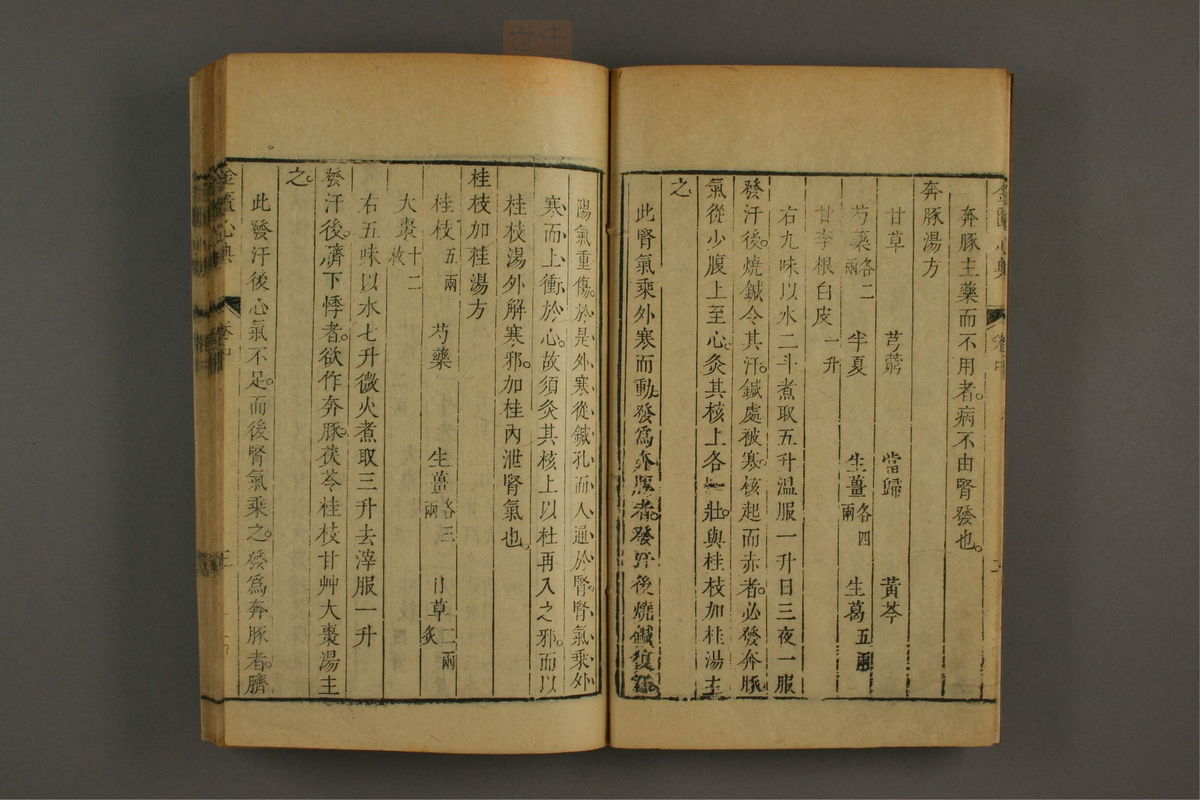 奔豚主藥而不用者。病不由腎發也。
奔豚湯方
甘草　芎藭　當歸　黃芩
芍藥各二兩　半夏　生薑各四兩　生葛五兩
甘李根白皮一升
右九味以水二斗煮取五升温服一升日三夜一服
發汗後。燒鍼令其汗。鍼處被寒。核起而赤者。必發奔豚。
氣從少腹上至心。灸其核上各一壯。與桂枝加桂湯主
之。
此腎氣乘外寒而動。發爲奔豚者。發汗後燒鍼復汗。
陽氣重傷。於是外寒從鍼孔而入通於腎。腎氣乘外
寒而上衝於心。故須灸其核上以杜再入之邪。而以
桂枝湯外解寒邪。加桂內泄腎氣也。
桂枝加桂湯方
桂枝五兩　芍藥　生薑各三兩　甘草二兩炙
大棗十二枚
右五味以水七升微火煮取三升去滓服一升
發汗後。臍下悸者。欲作奔豚。茯苓桂枝甘艸大棗湯主
之。
此發汗後心氣不足。而後腎氣乘之。發爲奔豚者。臍
金匱心典
卷中